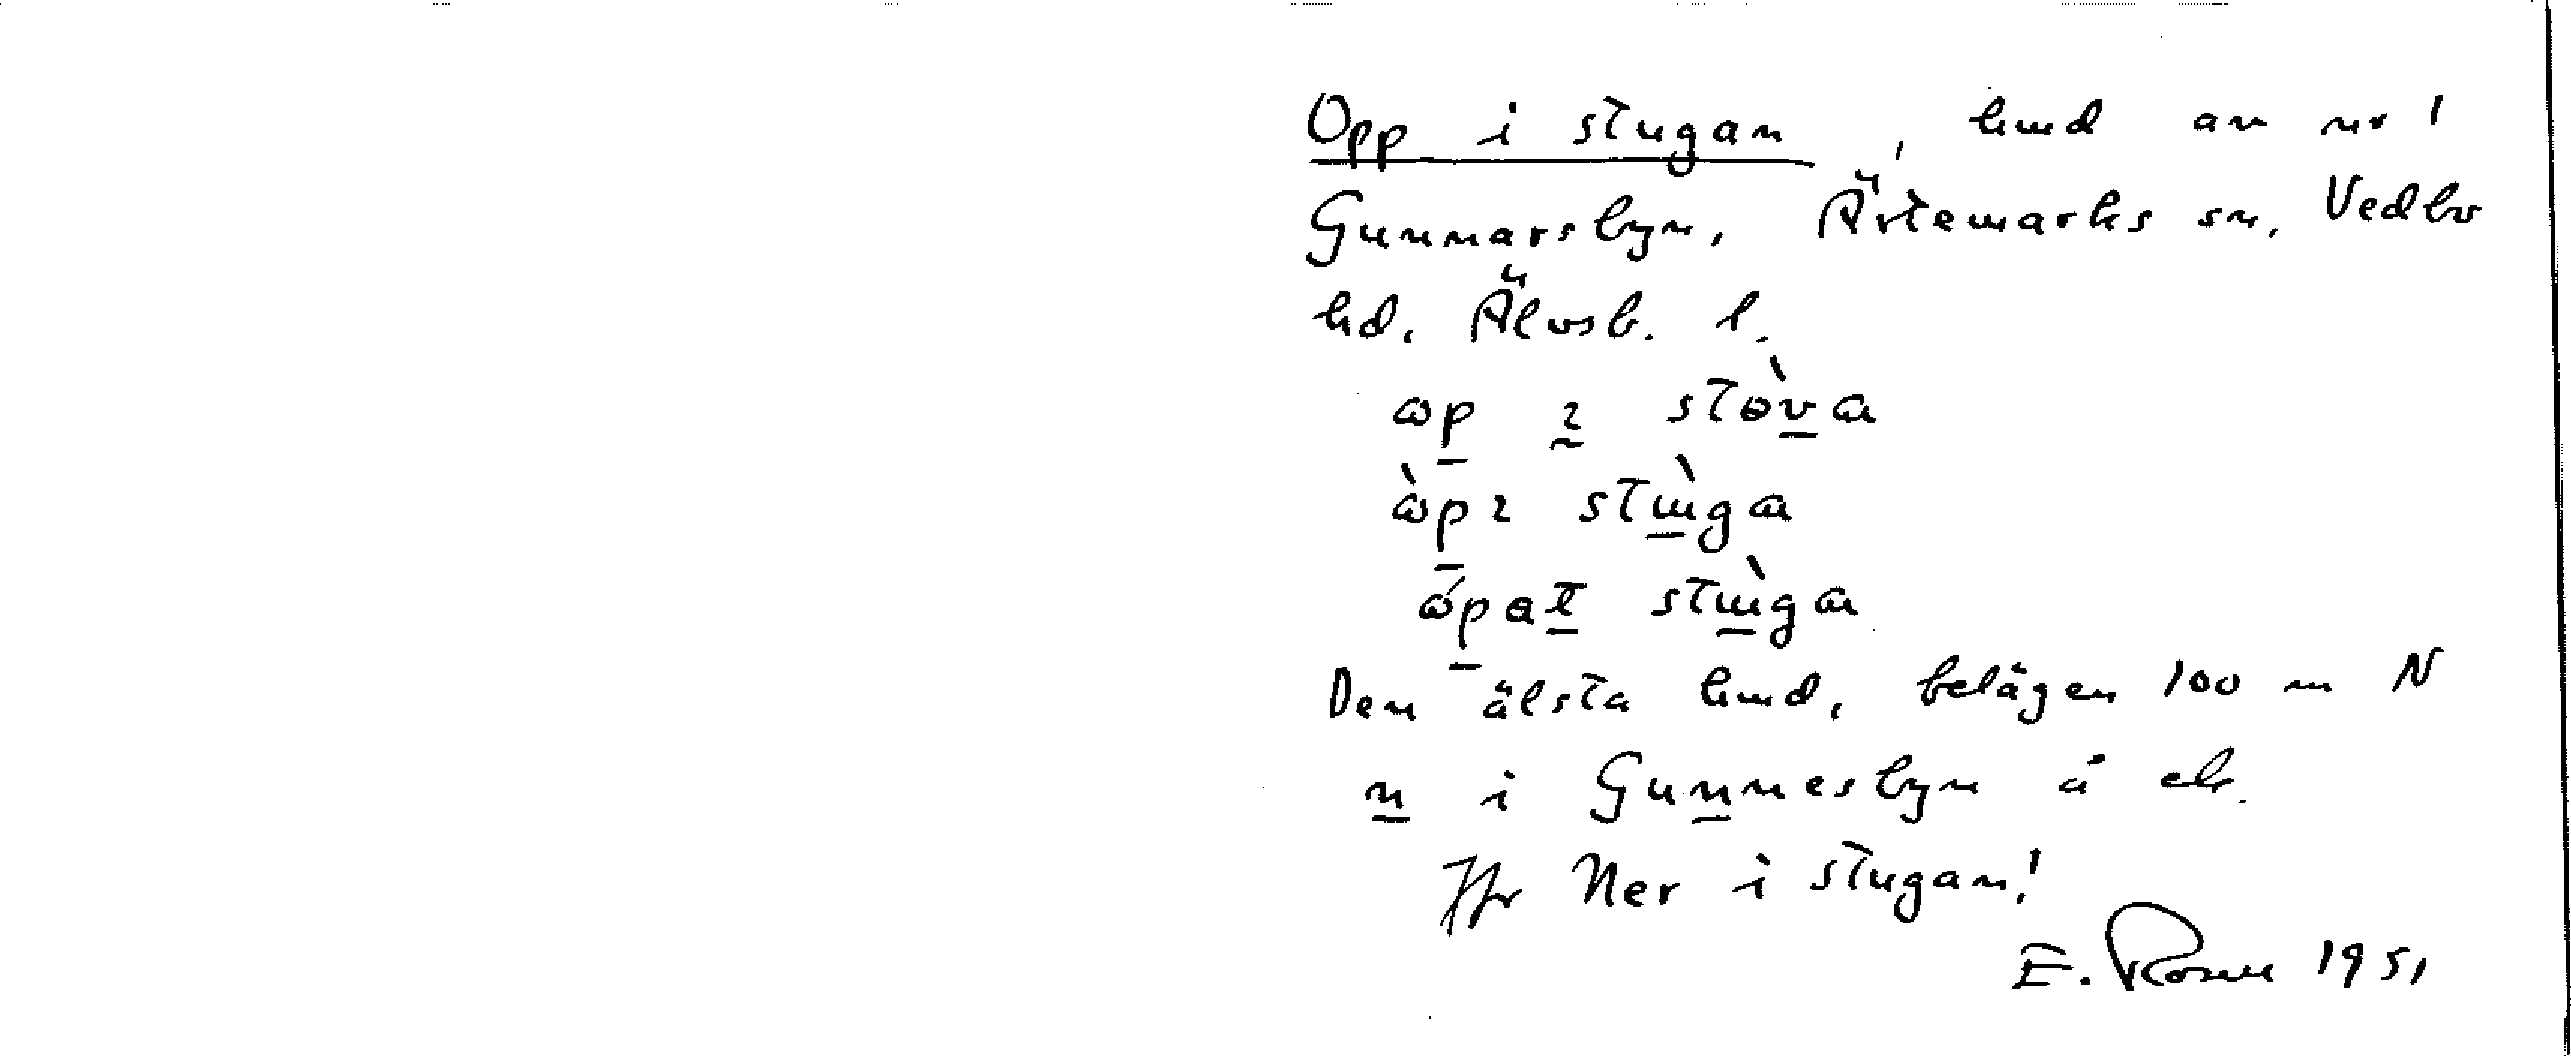 Opp i stugan, hmd av nr 1
Gunnarsbyn, Ärtemarks sn, Vedbo
hd, Älvsb. l.
ωp ɩ stɵ̀va
ὼpɩ stɯ̀ga
ώpat stɯ̀ga
Den älsta hmd, belägen 100 m N
n i Gunnesbyn å ek.
Jfr Ner i stugan!
E. Rosen 1951